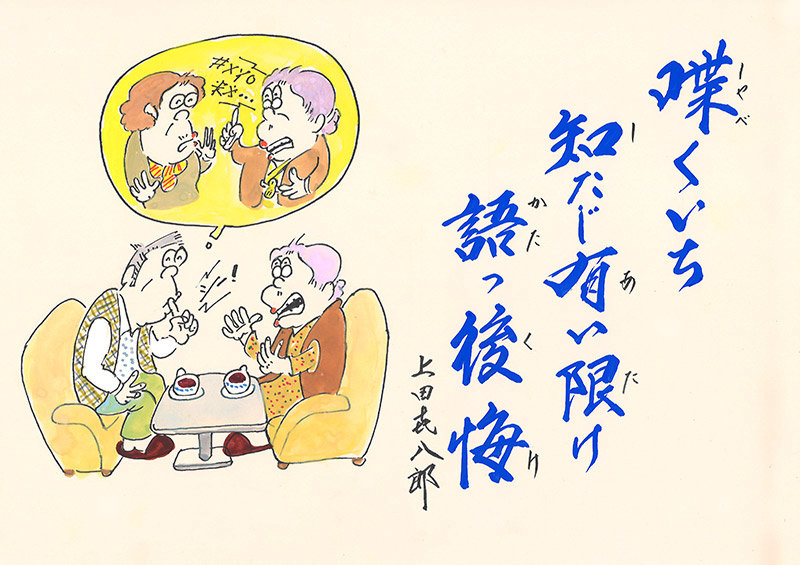 しゃべ
喋くいち
し あ た
知たじ有い限け
かた く り
語っ後悔
上田喜八郎
!